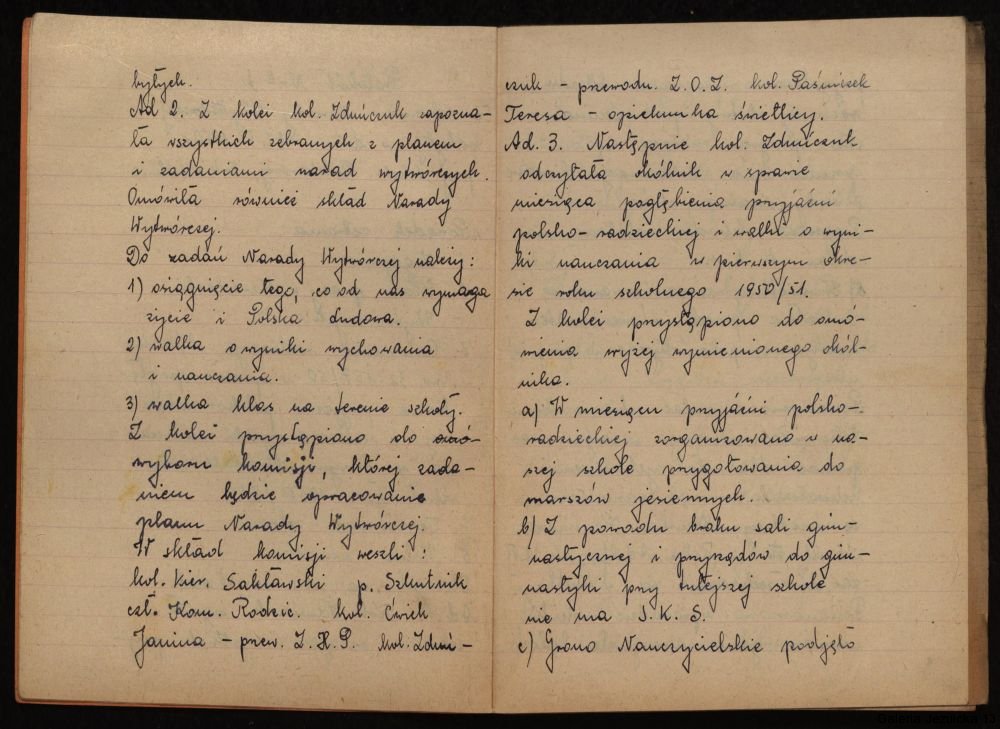 byłych.
Ad 2. Z kolei kol. Zduńczuk zapozna-
ła wszystkich zebranych z planem
i zadaniami narad wytwórczych.
Omówiła również skład Narady
Wytwórczej.
Do zadań Narady Wytwórczej należy:
1) osiągnięcie tego, co od nas wymaga
życie i Polska Ludowa.
2) walka o wyniki wychowania
i nauczania.
3) walka klas na terenie szkoły.
Z kolei przystępiono do omó-
wyboru komisji, której zada-
niem będzie opracowanie
planu Narady Wytwórczej.
W skład komisji weszli:
kol. Kier. Sakławski p. Szkutnik
czł. Kom. Rodzic. kol. Ćwiek
Janina – przew. Z.H.P. kol. Zduń-
czuk – przewodn. Z.O.Z. kol. Paśniczek
Teresa – opiekunka świetlicy.
Ad. 3. Następnie kol. Zduńczuk
odczytała okólnik w sprawie
miesiąca pogłębienia przyjaźni
polsko-radzieckiej i walki o wyni-
ki nauczania w pierwszym okre-
sie roku szkolnego 1950/51.
Z kolei przystąpiono do omó-
wienia wyżej wymienionego okól-
nika.
a) W miesiącu przyjaźni polsko-
radzieckiej zorganizowano w na-
szej szkole przygotowania do
marszów jesiennych.
b) Z powodu braku sali gim-
nastycznej i przyrządów do gim-
nastyki przy tutejszej szkole
nie ma S.K.S.
c) Grono Nauczycielskie podjęło
Galeria Jezilicka 13